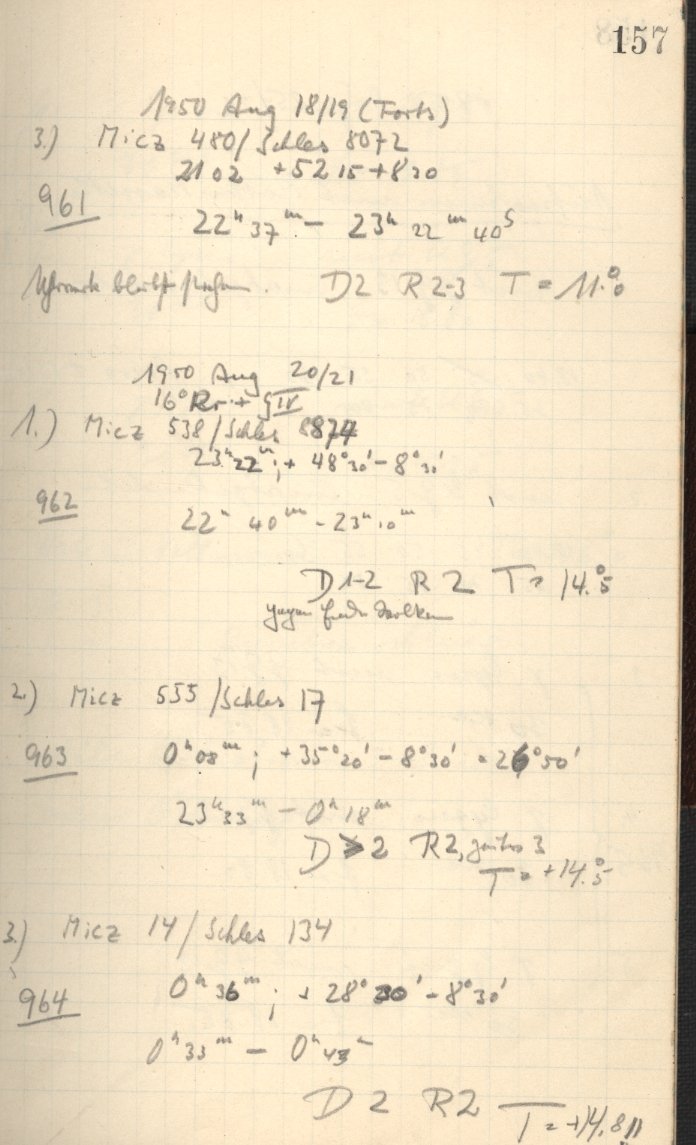 157
1950 Aug 18/19 (Forts)
3.) Micz 480/Schles 8072
21 02 +52 15 + 8 30
961
22ʰ 37ᵐ – 23ʰ 22ᵐ 40ˢ
Uhrwerk bleibt stehen. D2 R 2-3 T = 11.°0
1950 Aug 20/21
16° Rr + §IV
1.) Micz 538/Schles 8874
23ʰ 22ᵐ; + 48°30' – 8°30'
962
22ʰ 40ᵐ – 23ʰ 10ᵐ
D 1-2 R 2 T = 14.°5
gegen Ende Wolken
2.) Micz 555/Schles 17
963 0ʰ 08ᵐ; +35°20' – 8°30' = 26°50'
23ʰ 33ᵐ – 0ʰ 18ᵐ
D 2 R2, 3
T = +14.°5
3.) Micz 14/Schles 134
964 0ʰ 36ᵐ; + 28°30' – 8°30'
0ʰ 33ᵐ – 0ʰ 43ᵐ
D 2 R2 T = +14.8